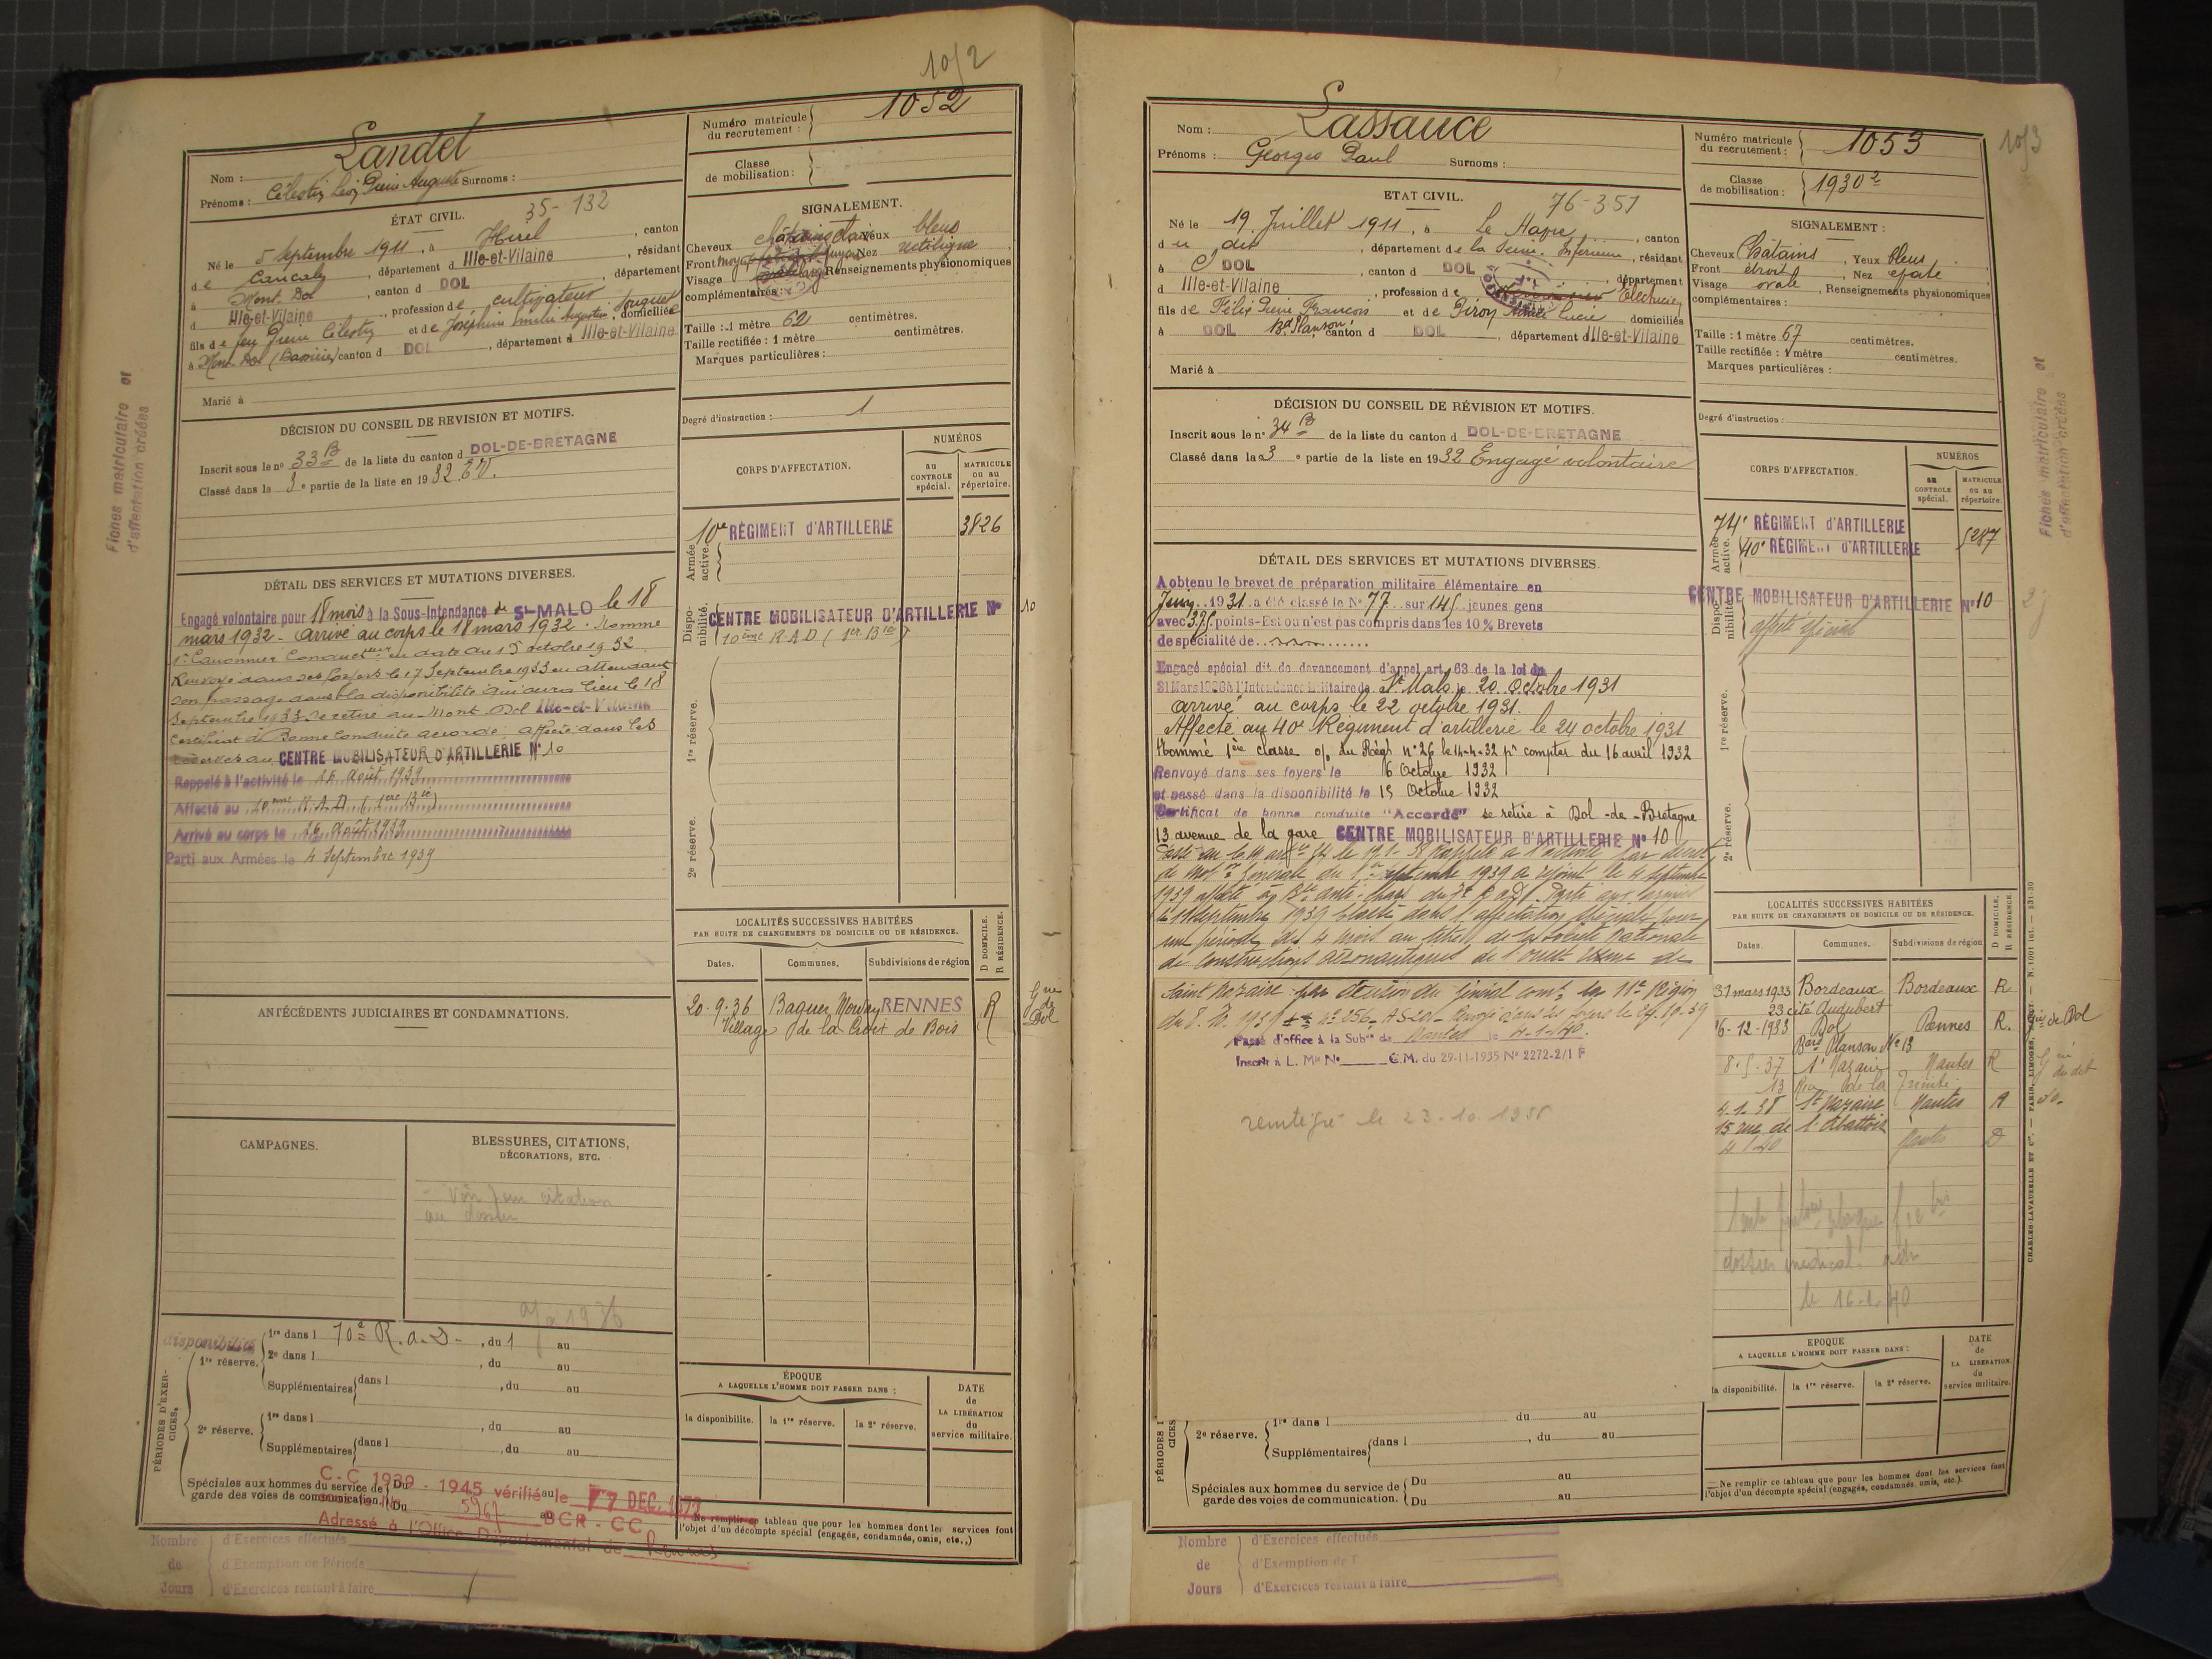 1052
Numéro matricule du recrutement : 1052
Nom : Landel
Prénoms : Célestin Léon Pierre Auguste Surnoms :
Classe de mobilisation :
ÉTAT CIVIL.
35-132
Né le 5 Septembre 1911, à Hirel, canton
de Cancale, département d Ille-et-Vilaine, résidant
à Mont-Dol, canton d DOL, département
d Ille-et-Vilaine, profession de cultivateur
fils de feu Pierre Célestin et de Joséphine Emilie Augustine, domiciliée
à Mont-Dol canton d DOL, département d Ille-et-Vilaine
Marié à
SIGNALEMENT.
Cheveux châtains Yeux bleus
Front moyen Nez rectiligne
Visage Renseignements physionomiques
complémentaires :
Taille : 1 mètre 62 centimètres.
Taille rectifiée : 1 mètre centimètres.
Marques particulières :
Degré d'instruction : 1
DÉCISION DU CONSEIL DE REVISION ET MOTIFS.
Inscrit sous le nº 33 B de la liste du canton d DOL-DE-BRETAGNE
Classé dans la 3e partie de la liste en 1932. E.V.
Fiches matriculaire et
d'affectation créées
CORPS D'AFFECTATION.
NUMÉROS
au CONTROLE spécial.
MATRICULE ou au répertoire.
Armée active.
10e RÉGIMENT d'ARTILLERIE 3826
Disponibilité.
CENTRE MOBILISATEUR D'ARTILLERIE Nº 10
1re réserve.
2e réserve.
DÉTAIL DES SERVICES ET MUTATIONS DIVERSES.
Engagé volontaire pour 18 mois à la Sous-Intendance de St-MALO le 18
mars 1932 - arrivé au corps le 18 mars 1932. Nommé
1er Canonnier Conducteur en date du 15 octobre 1932
Renvoyé dans ses foyers le 17 Septembre 1933 en attendant
son passage dans la disponibilité qui aura lieu le 18
Septembre 1933 Se retire au Mont-Dol Ille-et-Vilaine
Certificat de Bonne Conduite accordé. affecté dans les
réserves au CENTRE MOBILISATEUR D'ARTILLERIE Nº 10
Rappelé à l'activité le 26 Août 1939
Affecté au
Arrivé au corps le 26 Août 1939
Parti aux Armées le 4 Septembre 1939
ANTÉCÉDENTS JUDICIAIRES ET CONDAMNATIONS.
LOCALITÉS SUCCESSIVES HABITÉES
PAR SUITE DE CHANGEMENTS DE DOMICILE OU DE RÉSIDENCE.
Dates. Communes. Subdivisions de région D DOMICILE. R RÉSIDENCE.
20-9-36 Baguer Morvan RENNES R
Village de la Croix de Bois
Gne de Dol
CAMPAGNES.
BLESSURES, CITATIONS,
DÉCORATIONS, ETC.
Voir pour citation
au dossier
PÉRIODES D'EXERCICES.
disponibilité
1re réserve. 1re dans l 10e R.a.D., du 1 au
2e dans l, du au
Supplémentaires dans l, du au
2e réserve. 1re dans l, du au
Supplémentaires dans l, du au
Spéciales aux hommes du service de garde des voies de communication. Du au
Du au
C.C 1939 - 1945 vérifié le 7 DEC. 1973
5967 BCR - CC
Adressé à l'Office Départemental de Rennes
ÉPOQUE
A LAQUELLE L'HOMME DOIT PASSER DANS :
la disponibilité. la 1re réserve. la 2e réserve.
DATE de LA LIBÉRATION du service militaire.
Ne remplir ce tableau que pour les hommes dont les services font
l'objet d'un décompte spécial (engagés, condamnés, omis, etc.,)
Nombre de Jours
d'Exercices effectués
d'Exemption de Période
d'Exercices restant à faire
1053
Nom : Lassauce
Prénoms : Georges Paul Surnoms :
Numéro matricule du recrutement : 1053
Classe de mobilisation : 1930 2
ETAT CIVIL.
76-351
Né le 19 Juillet 1911, à Le Havre, canton
du dit, département de la Seine-Inférieure, résidant
à DOL, canton d DOL, département
d Ille-et-Vilaine, profession de Electricien
fils de Félix Pierre François et de Piron Lucie domiciliés
à DOL Bd Planson, canton d DOL, département d Ille-et-Vilaine
Marié à
SIGNALEMENT :
Cheveux Châtains, Yeux bleus
Front étroit, Nez
Visage ovale, Renseignements physionomiques
complémentaires :
Taille : 1 mètre 67 centimètres.
Taille rectifiée : 1 mètre centimètres.
Marques particulières :
Degré d'instruction :
DÉCISION DU CONSEIL DE RÉVISION ET MOTIFS.
Inscrit sous le nº 34 B de la liste du canton d DOL-DE-BRETAGNE
Classé dans la 3e partie de la liste en 1932 Engagé volontaire
Fiches matriculaire et
d'affectation créées
CORPS D'AFFECTATION.
NUMÉROS
au CONTROLE spécial.
MATRICULE ou au répertoire.
Armée active.
74e RÉGIMENT d'ARTILLERIE
40e RÉGIMENT d'ARTILLERIE 5287
Disponibilité.
CENTRE MOBILISATEUR D'ARTILLERIE Nº 10
affecté spécial
1re réserve.
2e réserve.
DÉTAIL DES SERVICES ET MUTATIONS DIVERSES.
A obtenu le brevet de préparation militaire élémentaire en
Juin 1931 a été classé le Nº 77 sur 145 jeunes gens
avec 375 points - Est ou n'est pas compris dans les 10% Brevets
de spécialité de
Engagé spécial dit de devancement d'appel art. 63 de la loi du
31 Mars 1928 à l'Intendance Militaire de St Malo le 20 Octobre 1931
arrivé au corps le 22 octobre 1931.
Affecté au 40e Régiment d'artillerie le 24 octobre 1931
Nommé 1ère classe o/ du Régt nº 26 le 14-4-32 pr compter du 16 avril 1932
Renvoyé dans ses foyers le 16 Octobre 1932
et passé dans la disponibilité le 15 Octobre 1932
Certificat de bonne conduite "Accordé" se retire à Dol-de-Bretagne
13 avenue de la gare CENTRE MOBILISATEUR D'ARTILLERIE Nº 10
rappelé à l'activité par décret
de Mobon Générale du 1er septembre 1939 a rejoint le 4 septembre
1939 affecté à Bie anti-chars du Parti aux armées
le 11 septembre 1939 Classé dans l'affectation spéciale pour
une période de 4 mois au titre de la Société Nationale
de Constructions aéronautiques de l'ouest Usine de
Saint Nazaire par décision du Général comt la 11e Région
du 1939 nº 256 Renvoyé dans ses foyers le 27.10.39
Passé d'office à la Subon de Nantes le 4-1-40.
Inscrit à L. Mle Nº C.M. du 29-11-1935 Nº 2272-2/1 F
reintégré le 23-10.
LOCALITÉS SUCCESSIVES HABITÉES
PAR SUITE DE CHANGEMENTS DE DOMICILE OU DE RÉSIDENCE.
Dates. Communes. Subdivisions de région D DOMICILE. R RÉSIDENCE.
31 mars 1933 Bordeaux Bordeaux R
23 cité Audubert
16-12-1933 Dol Rennes R. Gie de Dol
Bard Planson Nº 13
8-5-37 St Nazaire Nantes R
13 Rue de la Trinité
4-1-38 St Nazaire Nantes R
15 rue de l'Abattoir
4 1 40 Nantes D
dossier médical
le 16-1-40
EPOQUE
A LAQUELLE L'HOMME DOIT PASSER DANS :
la disponibilité. la 1re réserve. la 2e réserve.
DATE de LA LIBÉRATION du service militaire.
2e réserve. 1re dans l du au
Supplémentaires dans l, du au
Spéciales aux hommes du service de garde des voies de communication. Du au
Du au
Ne remplir ce tableau que pour les hommes dont les services font
l'objet d'un décompte spécial (engagés, condamnés, omis, etc.).
Nombre de Jours
d'Exercices effectués
d'Exemption de P
d'Exercices restant à faire